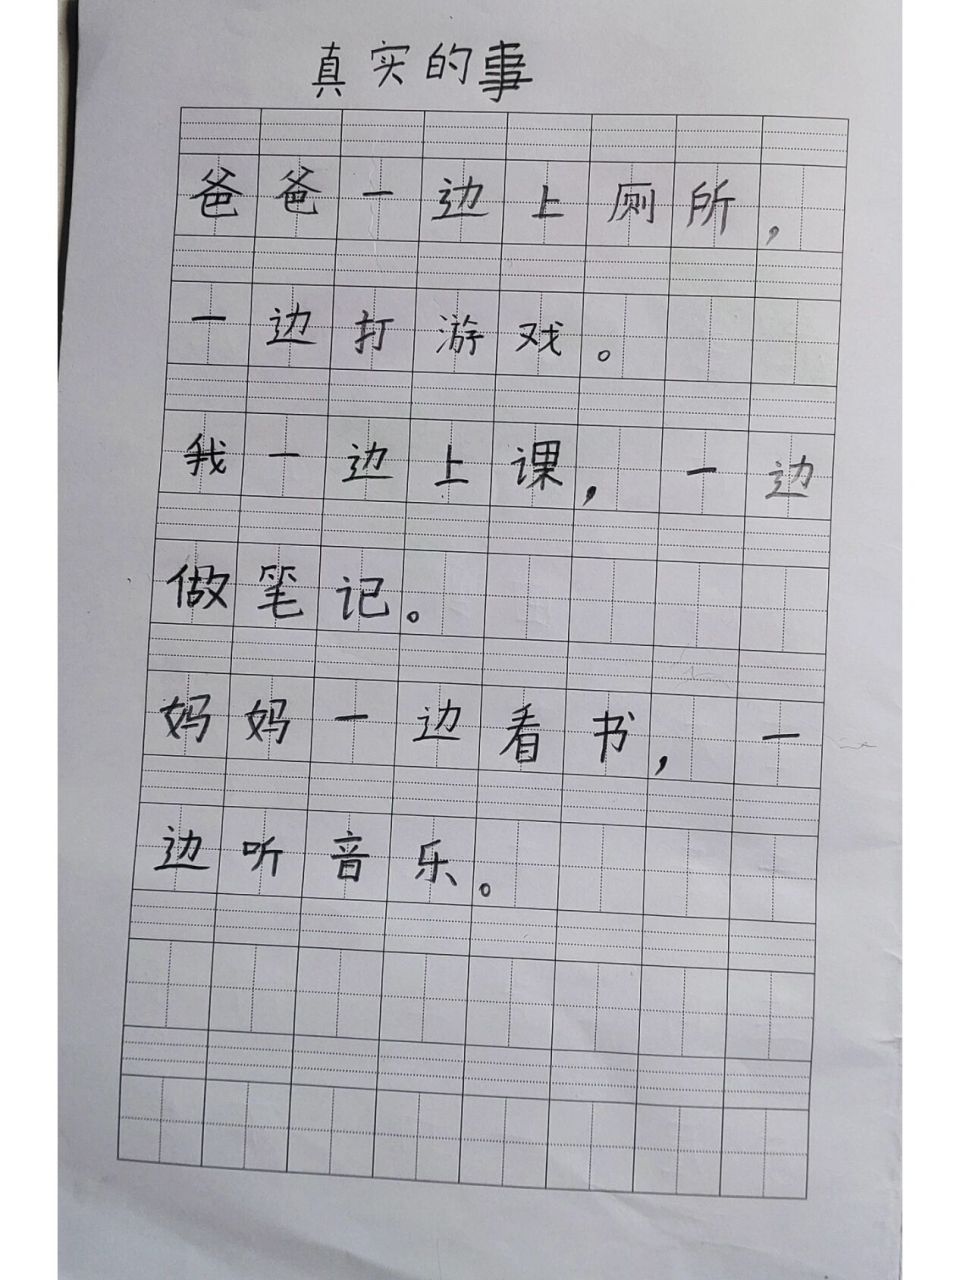 真实的事
爸爸一边上厕所，
一边打游戏。
我一边上课，一边
做笔记。
妈妈一边看书，一
边听音乐。